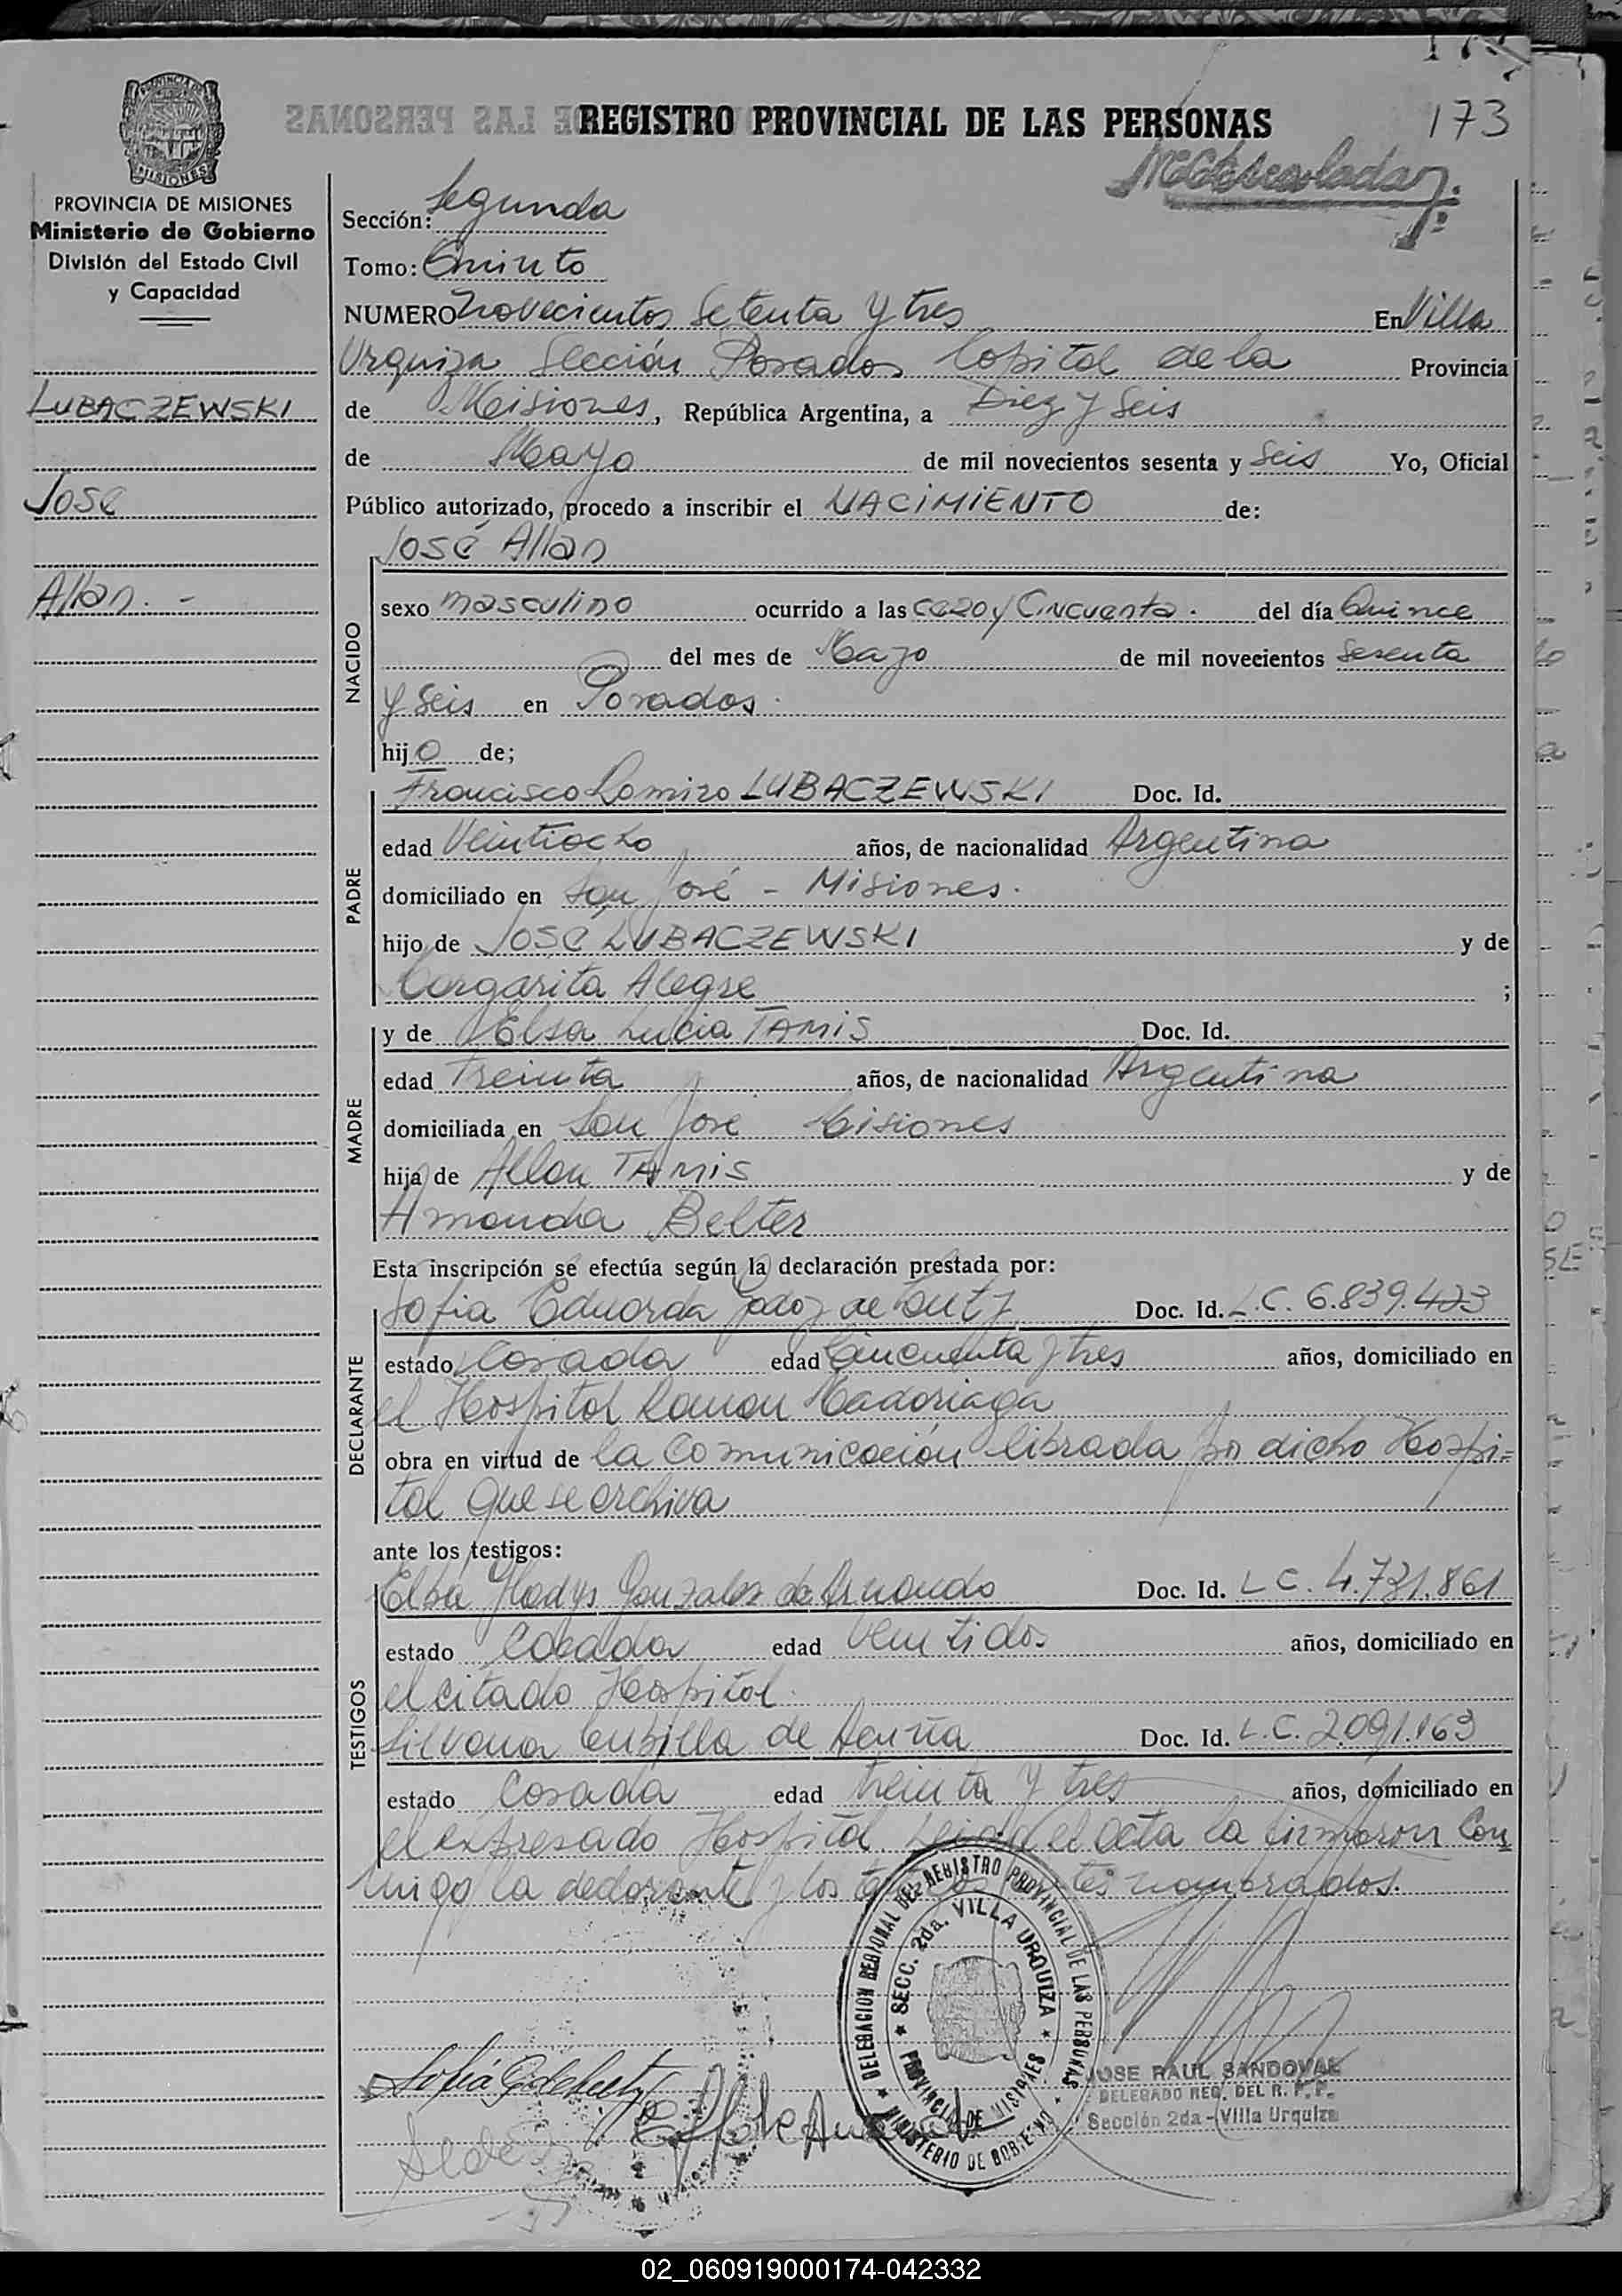 173
REGISTRO PROVINCIAL DE LAS PERSONAS
PROVINCIA DE MISIONES
Ministerio de Gobierno
División del Estado Civil
y Capacidad
LUBACZEWSKI
José
Allan. -
Sección: Segunda
Tomo: Quinto
NUMERO Novecientos Setenta y tres En Villa
Urquiza Sección Posadas Capital de la Provincia
de Misiones, República Argentina, a Diez y Seis
de Mayo de mil novecientos sesenta y Seis Yo, Oficial
Público autorizado, procedo a inscribir el NACIMIENTO de:
José Allan
NACIDO
sexo masculino ocurrido a las cero y Cincuenta. del día Quince
del mes de Mayo de mil novecientos Sesenta
y Seis en Posadas.
hijo de;
PADRE
Francisco Ramiro LUBACZEWSKI Doc. Id.
edad Veintiocho años, de nacionalidad Argentina
domiciliado en San José - Misiones.
hijo de José LUBACZEWSKI y de
Margarita Alegre ;
MADRE
y de Elsa Lucia TAMIS Doc. Id.
edad Treinta años, de nacionalidad Argentina
domiciliada en San José Misiones
hija de Allan TAMIS y de
Amanda Belter
Esta inscripción se efectúa según la declaración prestada por:
DECLARANTE
Sofia Eduarda Godoy de Doc. Id. L.C. 6.839.423
estado Casada edad Cincuenta y tres años, domiciliado en
el Hospital Ramon Madariaga
obra en virtud de la Comunicación librada por dicho Hospi=
tal que se archiva
ante los testigos:
TESTIGOS
Elba Gladys Gonzalez de Doc. Id. L C. 4.731.861
estado Casada edad Veintidos años, domiciliado en
el citado Hospital.
Silvana Cubilla de Acuña Doc. Id. L.C. 2.091.163
estado Casada edad treinta y tres años, domiciliado en
el expresado Hospital Leida el acta la firmaron Con
migo la declarante y los nombrados.
DELEGACION REGIONAL DEL REGISTRO PROVINCIAL DE LAS PERSONAS
SECC. 2da. VILLA URQUIZA
PROVINCIA DE MISIONES
MINISTERIO DE GOBIERNO
JOSE RAUL SANDOVAL
DELEGADO REG. DEL R. P. P.
Sección 2da - Villa Urquiza
02_060919000174-042332